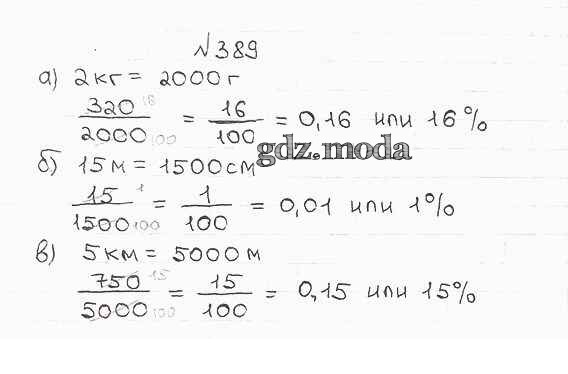 №389
а) 2 кг = 2000 г
320 16 / 2000 100 = 16 / 100 = 0,16 или 16%
gdz.moda
б) 15 м = 1500 см
15 1 / 1500 100 = 1 / 100 = 0,01 или 1%
в) 5 км = 5000 м
750 15 / 5000 100 = 15 / 100 = 0,15 или 15%